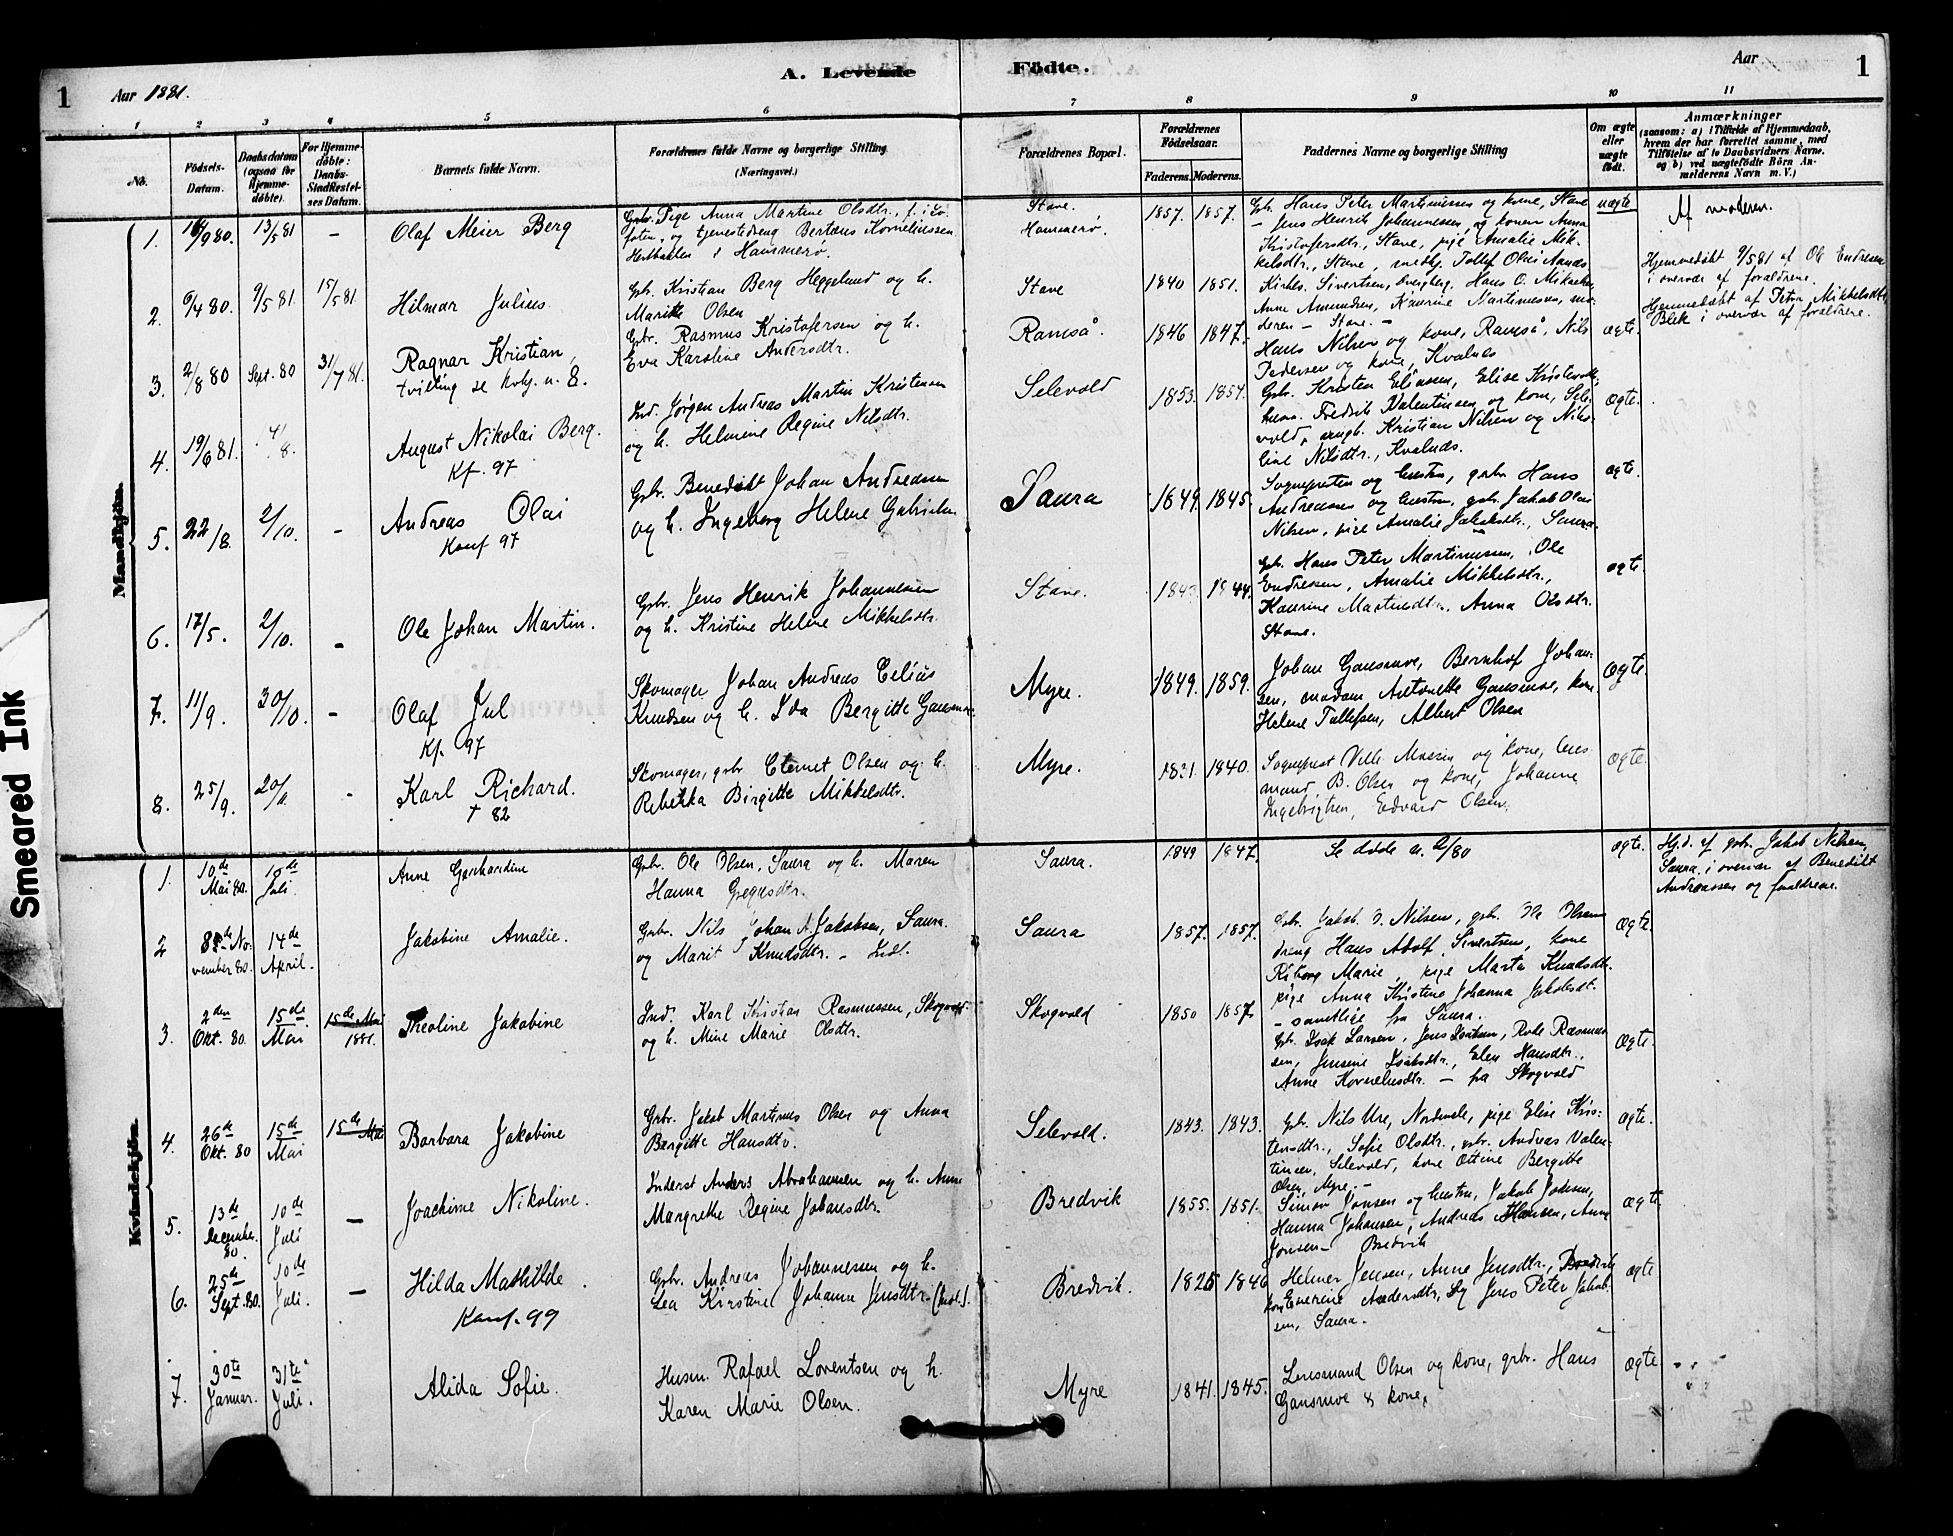 Smeared Ink
1
Aar 1881.
A. Levende Födte.
Aar
1
1 2 3 4 5 6 7 8 9 10 11
No.
Födsels-
Datum.
Daabsdatum
(ogsaa for
Hjemme-
døbte).
For Hjemme-
døbte:
Daabs-
Stadfæstel-
ses Datum.
Barnets fulde Navn.
Forældrenes fulde Navne og borgerlige Stilling
(Næringsvei.)
Forældrenes Bopæl.
Forældrenes
Fødselsaar.
Faderens. Moderens.
Faddernes Navne og borgerlige Stilling
Om ægte
eller
uægte
født.
Anmærkninger
(saasom: a) i Tilfælde af Hjemmedaab,
hvem der har forrettet samme, med
Tilføielse af to Daabsvidners Navne.
og b) ved uægtefødte Börn An-
melderens Navn m. V.)
Mandkjön.
1. 9 80. 13/5 81 - Olaf Meier Berg
Pige Anna Martine Olsdtr.,
foten, og tjenestedreng Bertæus Korneliussen
i Hammerø.
Stave.
Hammerø.
1857. 1857.
Gb. Hans Peter Martinussen og kone, Stave
- Jens Henrik Johannessen, og konen Anna
Kristofersdtr., Stave, pige Amalie Mik-
kelsdtr., Stave,
uægte
Af moderen.
2. 6/4 80. 9/5 81. 15/5 81. Hilmar Julius.
Gb. Kristian Berg Heggelund og h.
Marith Olsen
Stave
1840 1851.
Sivertsen, Hans O.
Anne Amundsen, Kaurine Martinussen, mo-
deren - Stave. -
Hjemmedøbt 9/5 81 af Ole Endresen
i overvær af forældrene.
3. 2/8 80 Sept. 80 31/7 81. Ragnar Kristian,
tvilling se kvkj. n. 8.
Gbr. Rasmus Kristofersen og h.
Eva Karoline Andersdtr.
Ramså.
1846 1847.
Hans Nilsen og kone, Ramså, Nils
Pedersen og kone, Kvalnes
ægte.
Hjemmedøbt af Peter Mikkelsdtr
Blek i overvær af forældrene.
4. 19/6 81. 4/8. August Nikolai Berg.
Kf. 97
Ind. Jørgen Andreas Martin Kristensen
og h. Helmine Regine Nilsdtr.
Selevold
1853. 1854.
Gbr. Kristen Eliasen, Elise
Fredrik Valentinsen og kone, Sele-
vold, Kristian Nilsen og Nils-
Nilsdtr., Kvalnes.
ægte.
5. 22/8. 2/10. - Andreas Olai
Konf 97
Gbr. Benedikt Johan Andreasen
og h. Ingeborg Helene Gabrielsen
Saura
1849. 1845.
Sognepresten og hustru, gbr. Hans
Andreassen og hustru, gbr. Jakob Olai
Nilsen, pige Amalie Jakobsdtr., Saura.
ægte.
6. 17/5. 2/10. - Ole Johan Martin.
Gbr. Jens Henrik Johannesen
og h. Kristine Helene Mikkelsdtr.
Stave.
1844.
Gbr. Hans Peter Martinussen, Ole
Endresen, Amalie Mikkelsdtr.,
Kaurine Martinsdtr. Anna Olsdtr.
Stave.
ægte.
7. 11/9. 30/10. - Olaf Jul
Kf. 97
Skomager Johan Andreas Celius
Knudsen og h. Ida Bergitte Gansmoe.
Myre.
1849. 1859.
Johan Gansmoe, Bernhof Johan-
sen, madam Antonette Gansmoe, kone
Helene Tollefsen, Albert Olsen
ægte
8. 25/9. 20/11. - Karl Richard.
† 82
Skomager, gbr. Clemet Olsen og h.
Rebekka Birgitte Mikkelsdtr.
Myre.
1831. 1840.
Sognepræst Vilh. og kone, lens
mand B. Olsen og kone, Johanne
Ingebrigtsen, Edvard Olsen.
ægte.
Kvindekjön.
1. 10de Mai 80. 10de Juli Anne Gerhardine
Gbr. Ole Olsen, Saura og h. Maren
Hanna
Saura.
1849 1847.
Se døde n. 2/80
ægte.
Hj.d. af gbr. Jakob Nilsen,
Saura i overvær af Benedikt
Andreassen og forældrene.
2 8de No-
vember 80. 14de April. Jakobine Amalie.
Gbr. Nils Johan A. Jakobsen, Saura.
og Marit J Knudsdtr. - Ind.
Saura
1857. 1857.
Gbr. Jakob Nilsen, gbr. Ole Olsen
dreng Hans Adolf Sivertsen, kone
Marie, pige Marta Knudsdtr.
pige Anna Kristine Johanna Jakobsdt.
- samtlige fra Saura.
ægte.
3. 2den Okt. 80. 15de Mai 15de Mai 1881. Theoline Jakobine
Ind. Karl Kristian Rasmussen, Skogvold
og h. Mine Marie Olsdtr.
Skogvold
1850 1857.
Gb. Isak Larsen, Jens Rasmus-
sen, Jensine Isaksdtr., Elen Hansdtr.,
Anne Korneliusdtr. - fra Skogvold
ægte.
4. 26de Okt. 80 15de Mai 15de Mai Barbara Jakobine
Gbr. Jakob Martinus Olsen og Anna
Bergitte Hansdtr.
Selevold.
1843. 1843.
Gb. Nils Ure, Nordmele, pige Elise Kris-
tensdtr., Sofie Olsdtr., gbr. Andreas Valen-
tinsen, Selevold, kone Ottine Bergitte
Olsen, Myre. -
ægte.
5. 13de December 80. 10de Juli - Joachime Nikoline.
Inderst Anders Abrahamsen og h. Anne
Margrethe Regine Johansdtr.
Bredvik
1855. 1851.
Simon Jonsen og hustru, Jakob
Hanna Johansen, Andreas Hansen, Anne
Jonsen - Bredvik
ægte.
6. 25de Sept. 80. 10de Juli. - Hilda Mathilde
Konf. 99
Gbr. Andreas Johannesen og h.
Lea Kirstine Johanna Jensdtr.
Bredvik.
1825 1846
Helmer Jensen, Anne Jensdtr., Bredvik
Andersdtr., Jens Peter Jakob-
sen, Saura.
ægte
7. 30te Januar. 31te Juli. Alida Sofie.
Husm. Rafael Lorentsen og h.
Karen Marie Olsen.
Myre
1841. 1845.
Lensmand Olsen og kone, gbr. Hans
Gansmoe & kone,
ægte